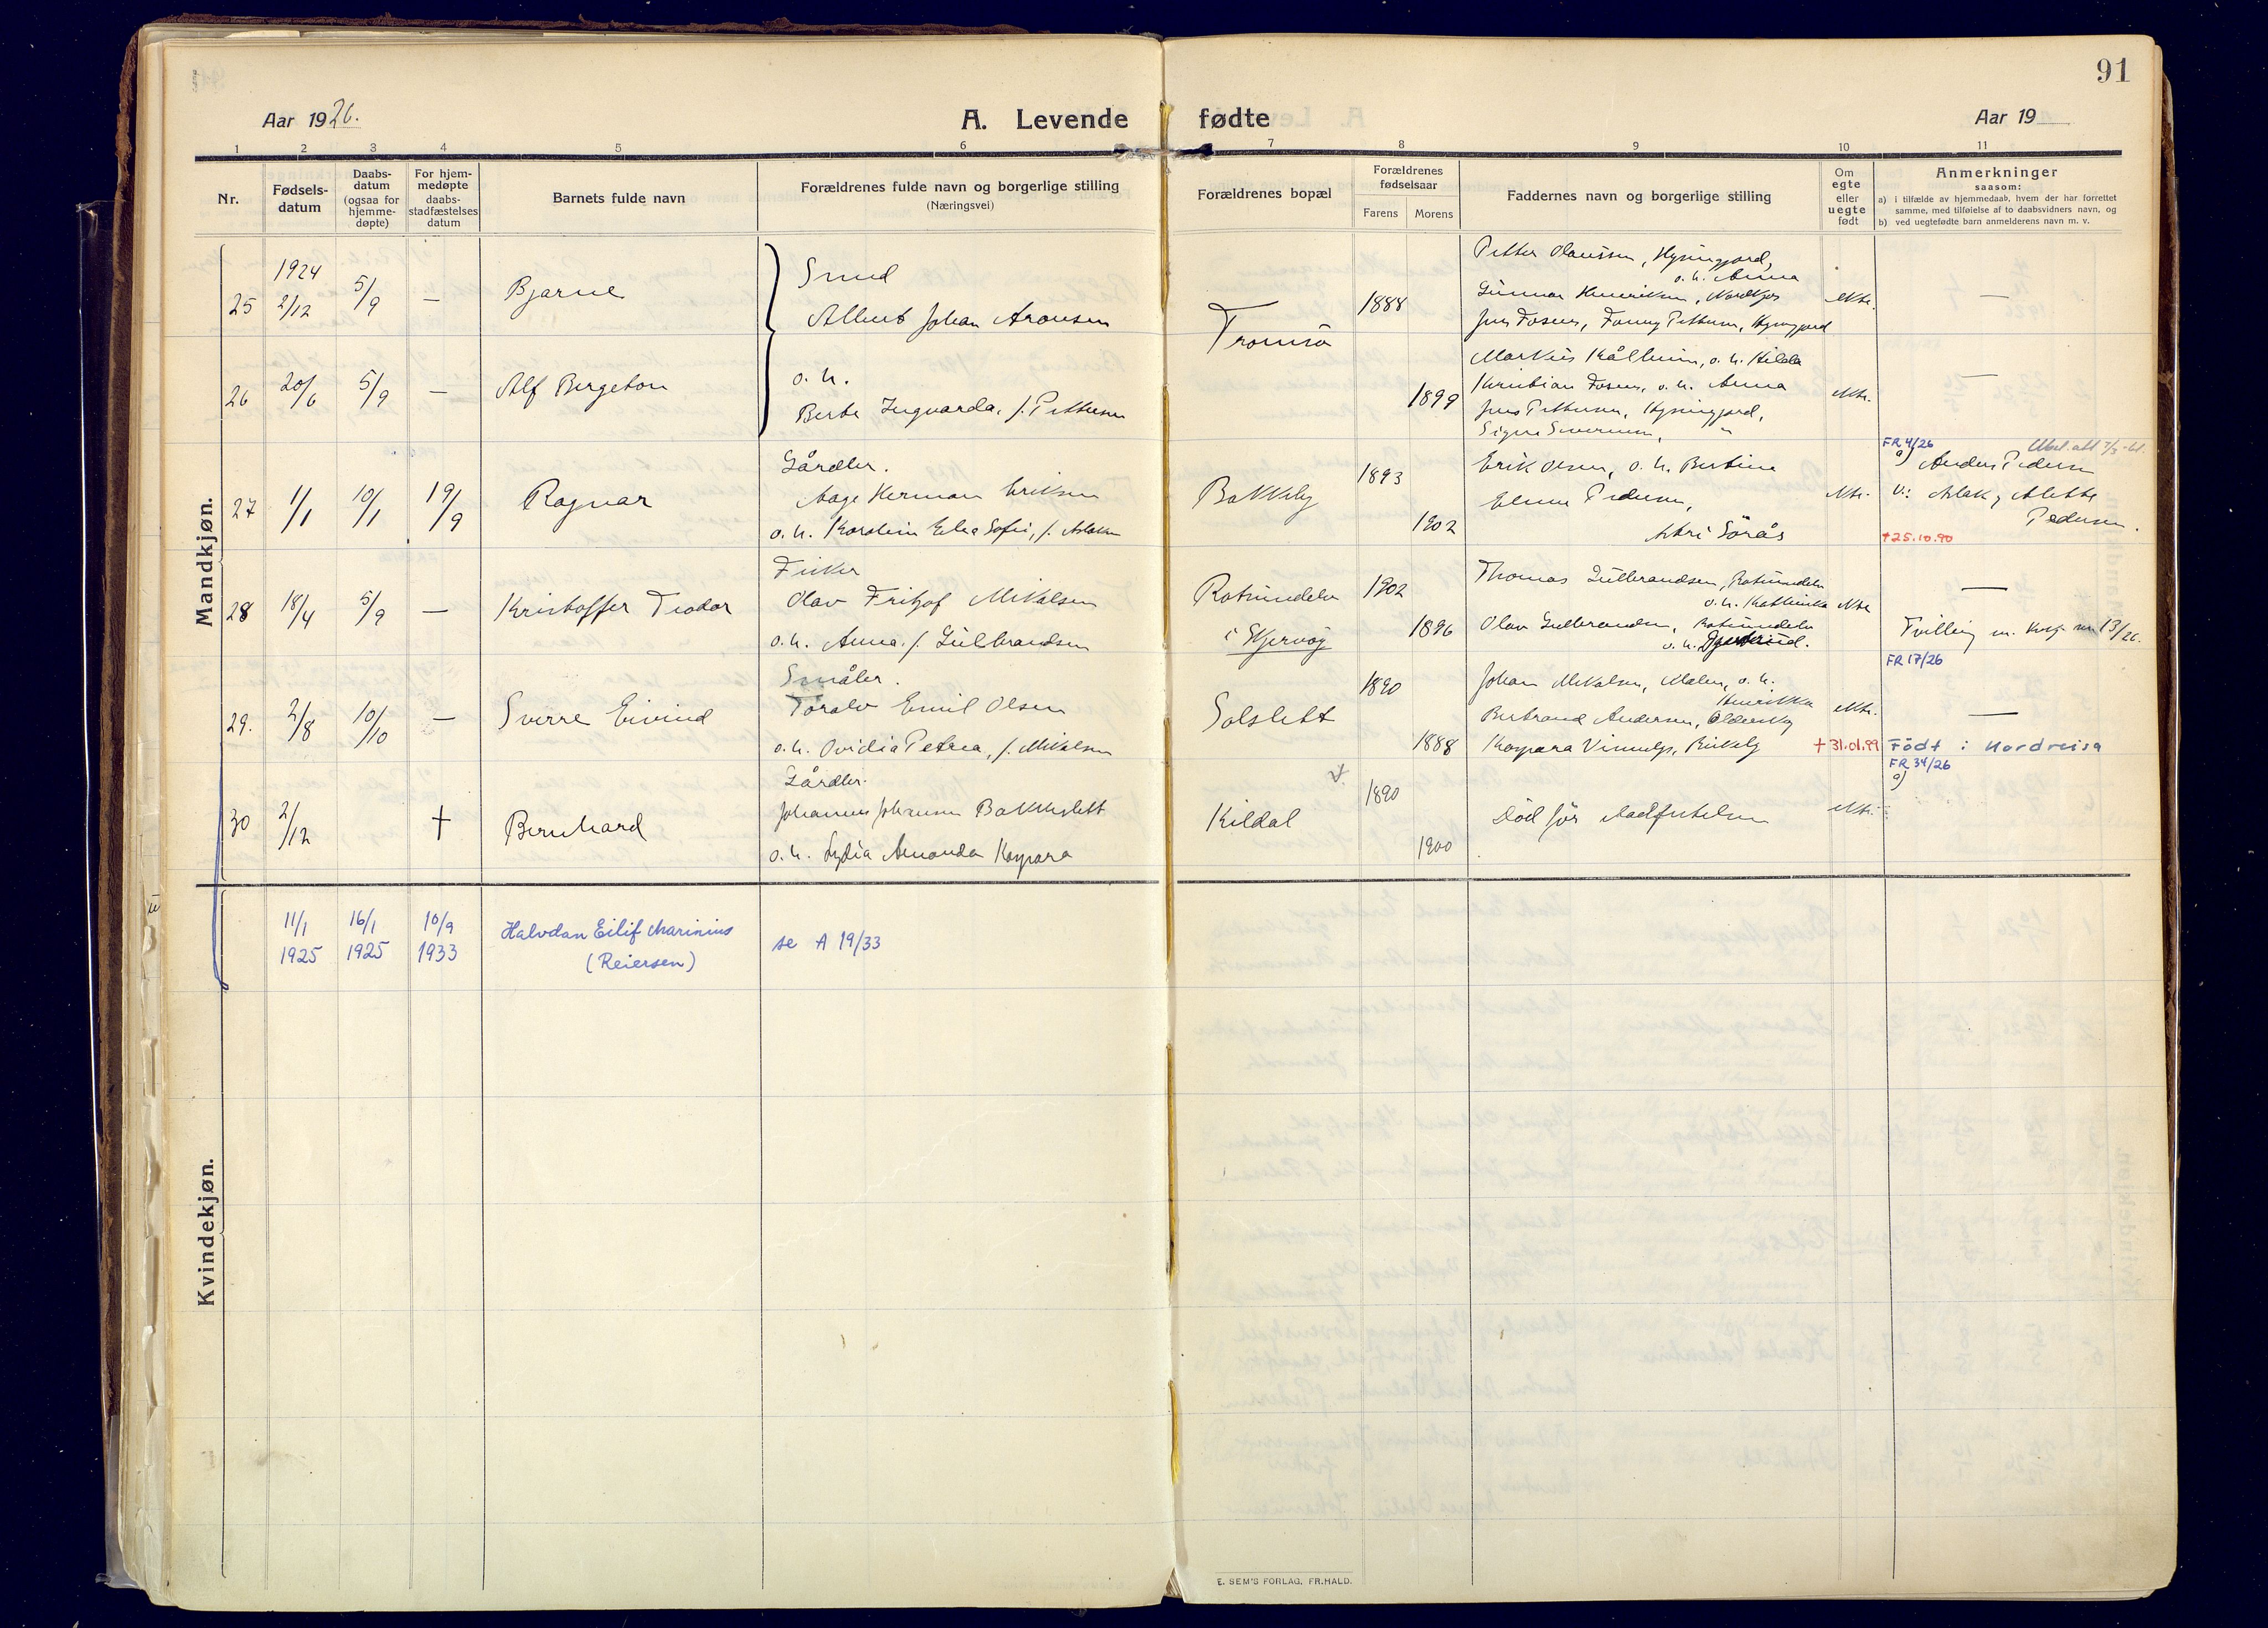 91
Aar 1926.
A. Levende fødte
Aar 19
1 2 3 4 5 6 7 8 9 10 11
Nr.
Fødsels-
datum
Daabs-
datum
(ogsaa for
hjemme-
døpte)
For hjem-
medøpte
daabs-
stadfæstelses
datum
Barnets fulde navn
Forældrenes fulde navn og borgerlige stilling
(Næringsvei)
Forældrenes bopæl
Forældrenes
fødselsaar
Farens Morens
Faddernes navn og borgerlige stilling
Om
egte
eller
uegte
født
Anmerkninger
saasom:
a) i tilfælde av hjemmedaab, hvem der har forrettet
samme, med tilføielse af to daabsvidners navn, og
b) ved uegtefødte barn anmelderens navn m. v.
Mandkjøn.
25 1924 2/12 5/9 — Bjarne
Smed
Albert Johan Aronsen
Tromsö 1888
Petter Olaussen,
o. h. Anna
Gunnar Henriksen,
Ekte. —
26 20/6 5/9 — Alf Bergeton
o. h.
Berte Ingvarda, f. Pettersen
1899
Markus Kålheim, o. h. Hilda
Kristian Fosen, o. h. Anna
Jens Pettersen,
Signe
Ekte. —
27 1/1 10/1 19/9 Ragnar
Gårdbr.
Aage Herman Eriksen
o. h. Karoline Elea Sofie, f. Aslaksen
Bakkeby 1893 1902
Erik Olsen, o. h. Bertine
Pedersen,
Sörås
Ekte.
FR 4/26
a) Anders Pedersen
v: Aslak og Alette
Pedersen.
+25.10.90
28 18/4 5/9 — Kristoffer Teodor
Fisker
Olav Fritjof Mikalsen
o. h. Anna, f. Gulbrandsen
Rotsundelv
i Skjervöy
1902 1896
Thomas Gulbrandsen, Rotsundelv
o. h. Kathinka
Olav Gulbrandsen, Rotsundelv
o. h.
Ekte —
Tvilling m. kvk. nr 13/26.
FR 17/26
29. 2/8 10/10 — Sverre Eivind
Småbr.
Toralv Emil Olsen
o. h. Ovidia Petrea, f. Mikalsen
Solslett 1890 1888
Johan Mikalsen, o. h.
Henrikka
Bertrand Andersen,
Kaspara
Ekte. —
+31.01.99 Født i Nordreisa
FR 34/26
a)
30 2/12 † Bernhard
Gårdbr.
Johannes Johansen Bakkeslett
o. h. Lydia Amanda Kaspara
Kildal 1890 1900
Död för stadfestelsen
Ekte.
11/1 1925 16/1 1925 10/9 1933
Halvdan Eilif Marinius
(Reiersen)
se A 19/33
Kvindekjøn.
E. SEM'S FORLAG, FR.HALD.